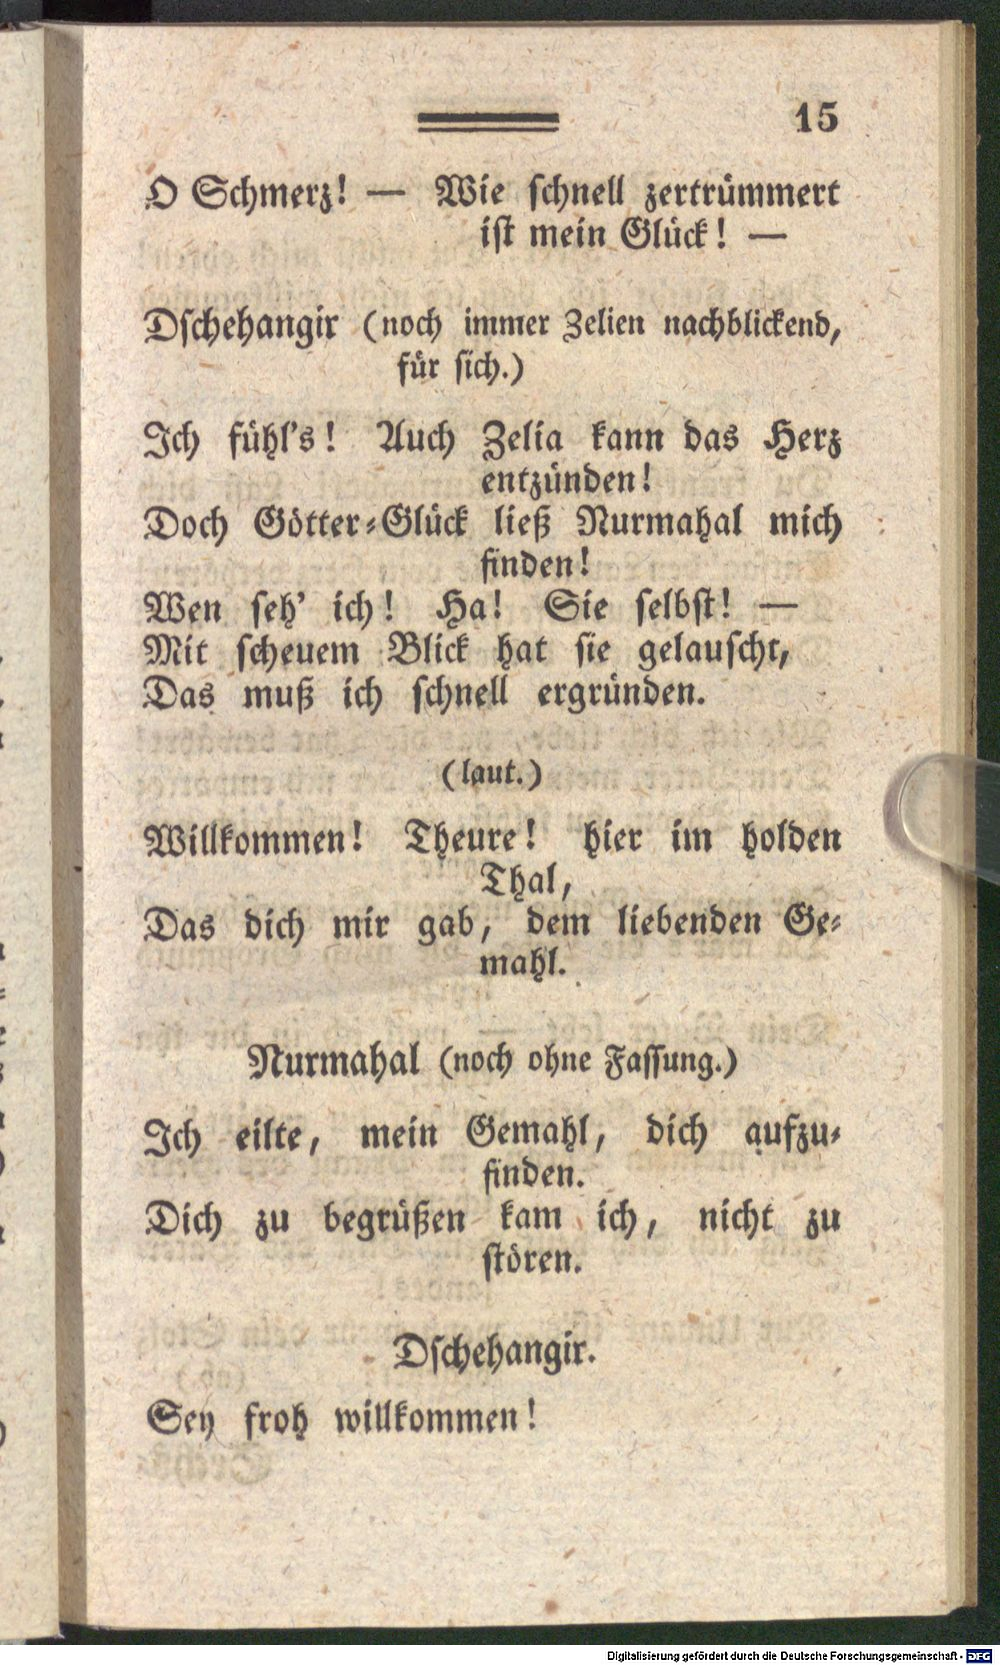 15
O Schmerz! — Wie schnell zertrümmert
ist mein Glück! —
Dschehangir (noch immer Zelien nachblickend,
für sich.)
Ich fühl's! Auch Zelia kann das Herz
entzünden!
Doch Götter-Glück ließ Nurmahal mich
finden!
Wen seh' ich! Ha! Sie selbst! —
Mit scheuem Blick hat sie gelauscht,
Das muß ich schnell ergründen.
(laut.)
Willkommen! Theure! hier im holden
Thal,
Das dich mir gab, dem liebenden Ge-
mahl.
Nurmahal (noch ohne Fassung.)
Ich eilte, mein Gemahl, dich aufzu-
finden.
Dich zu begrüßen kam ich, nicht zu
stören.
Dschehangir.
Sey froh willkommen!
Digitalisierung gefördert durch die Deutsche Forschungsgemeinschaft - DFG